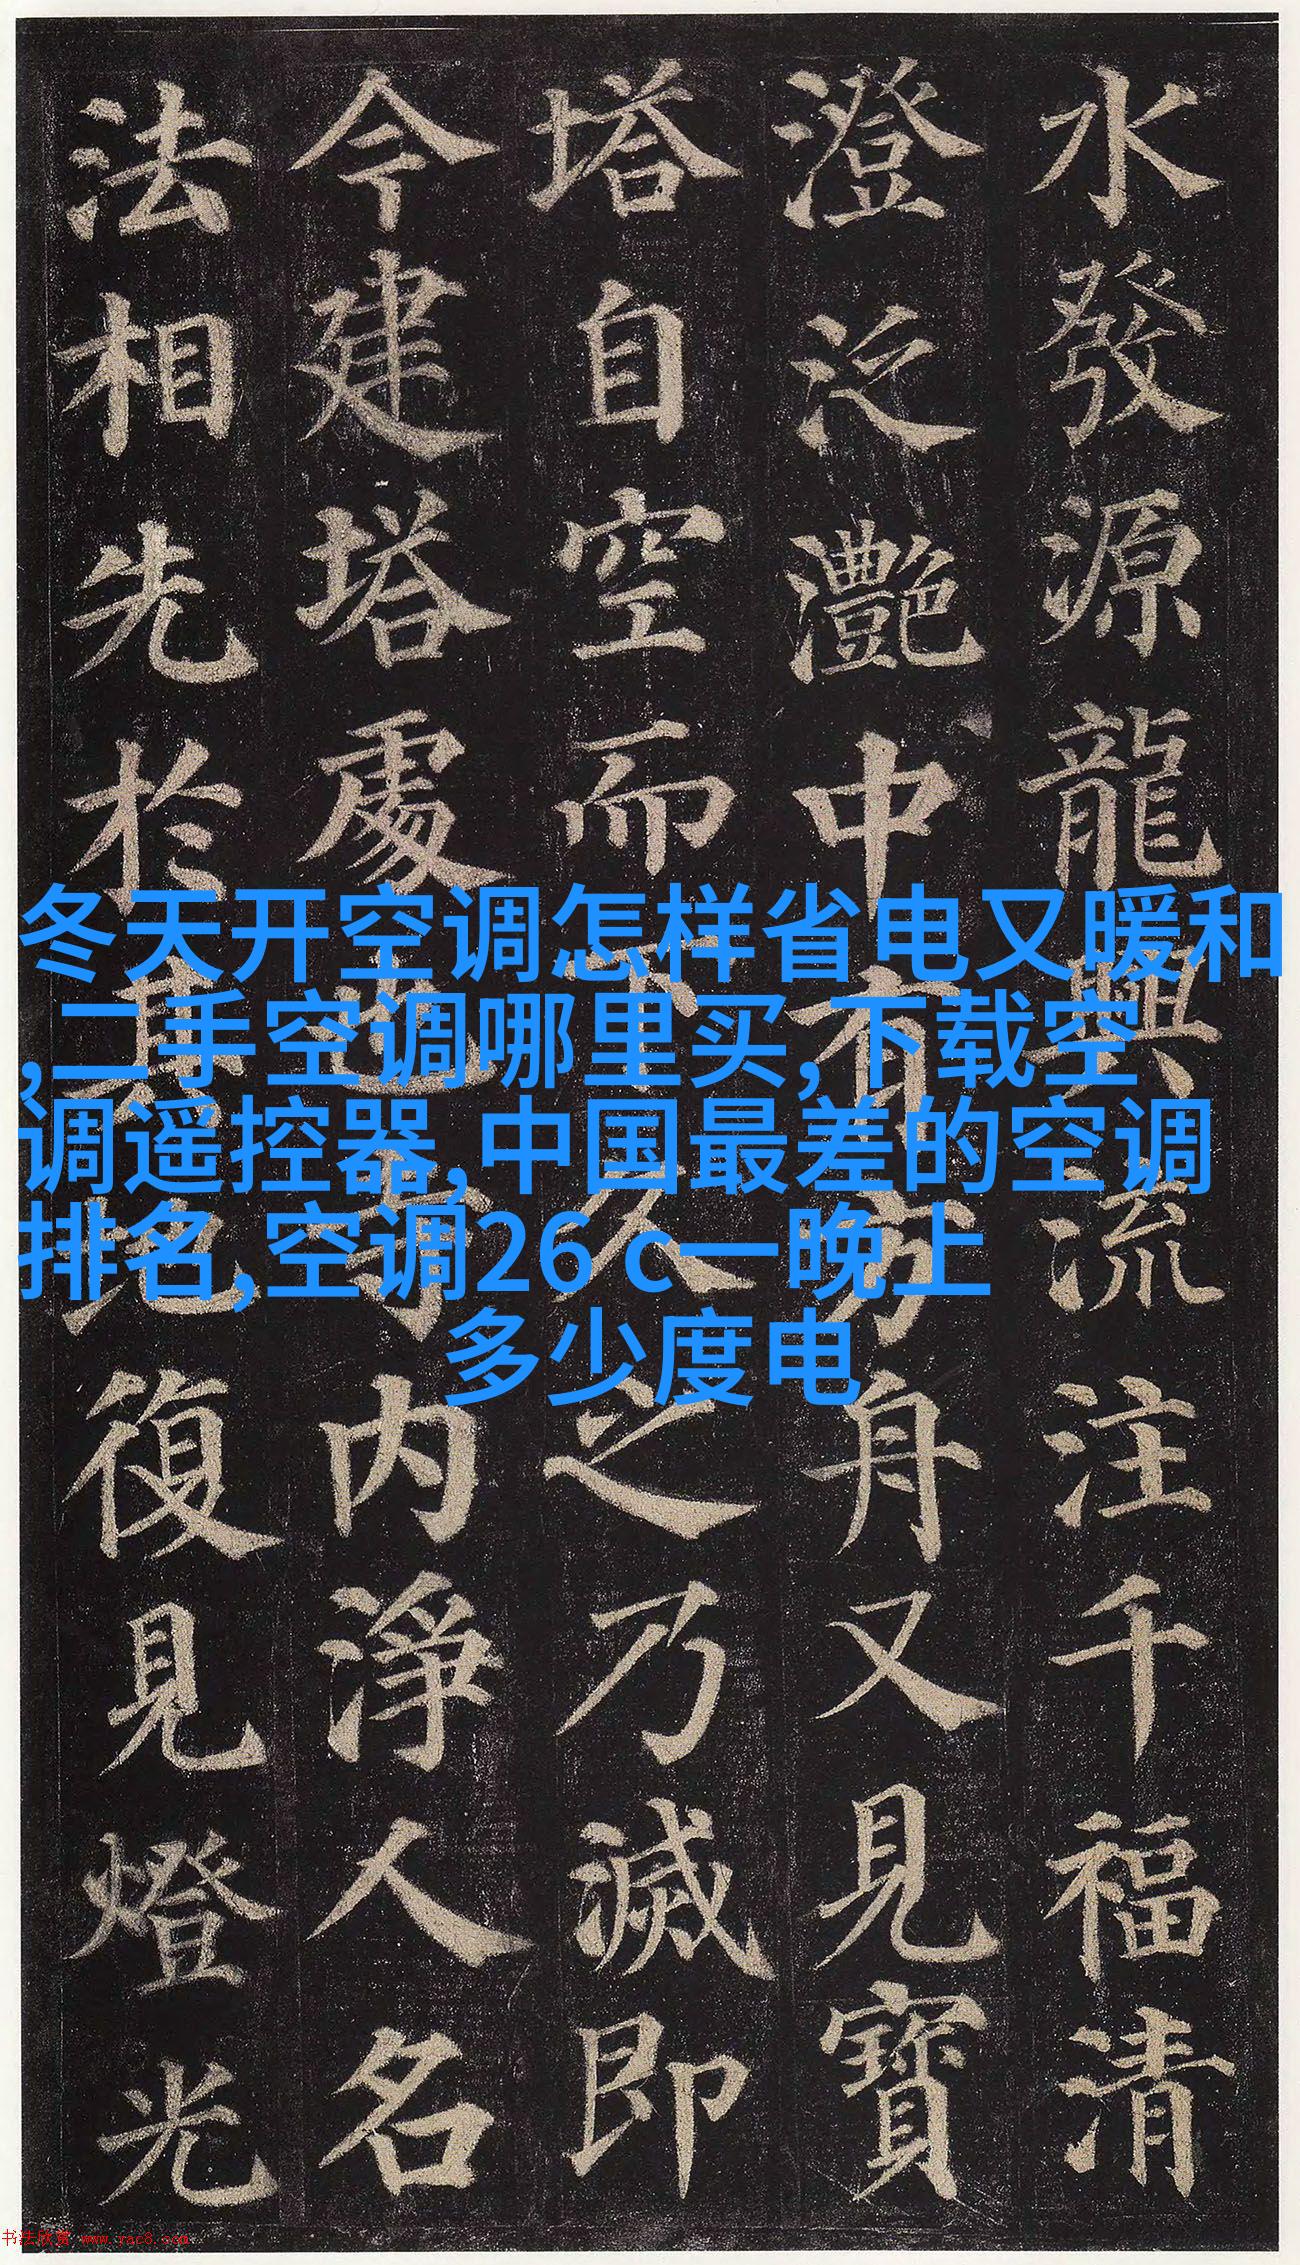 水發源龍興流注千福清
澄泛灧中有方舟又見寶
塔自空而下久之乃滅即
今建塔處也寺内淨人名
法相先於其地復見燈光
冬天开空调怎样省电又暖和
,二手空调哪里买,下载空
调遥控器,中国最差的空调
排名,空调26 c一晚上
多少度电
书法欣赏 www.yac8.com